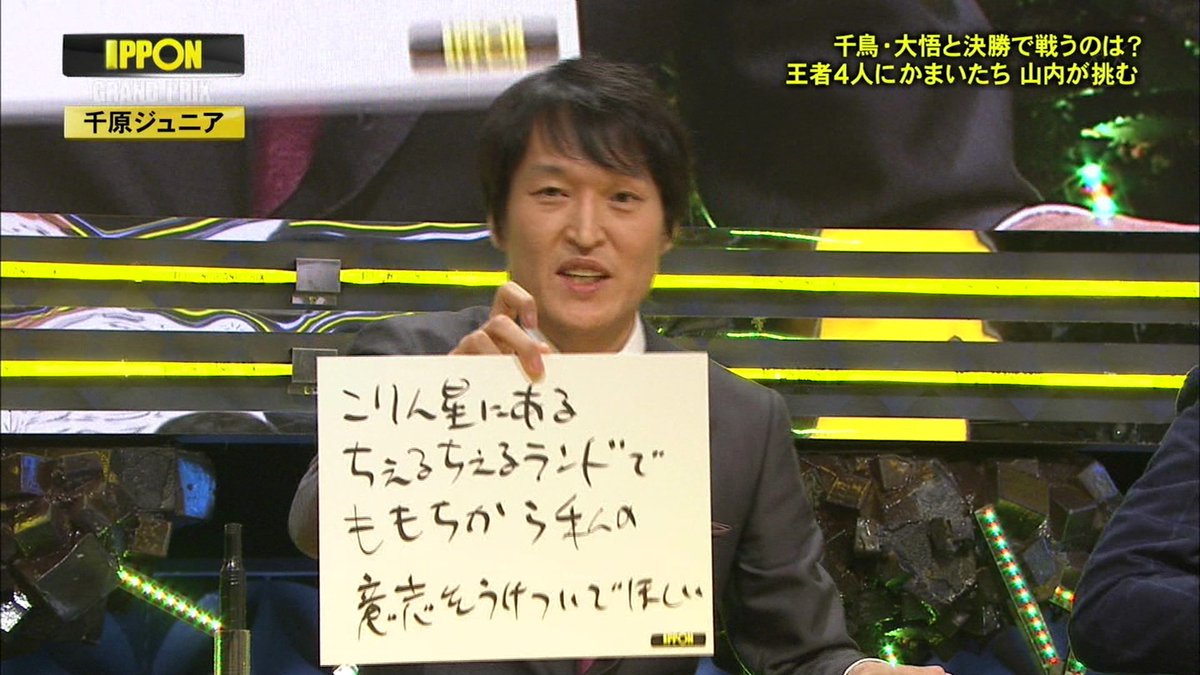 IPPON
GRAND PRIX
千原ジュニア
千鳥・大悟と決勝で戦うのは?
王者4人にかまいたち 山内が挑む
IPPON
こりん星にある
ちぇるちぇるランドで
ももちから私の
意志をうけついでほしい
IPPON